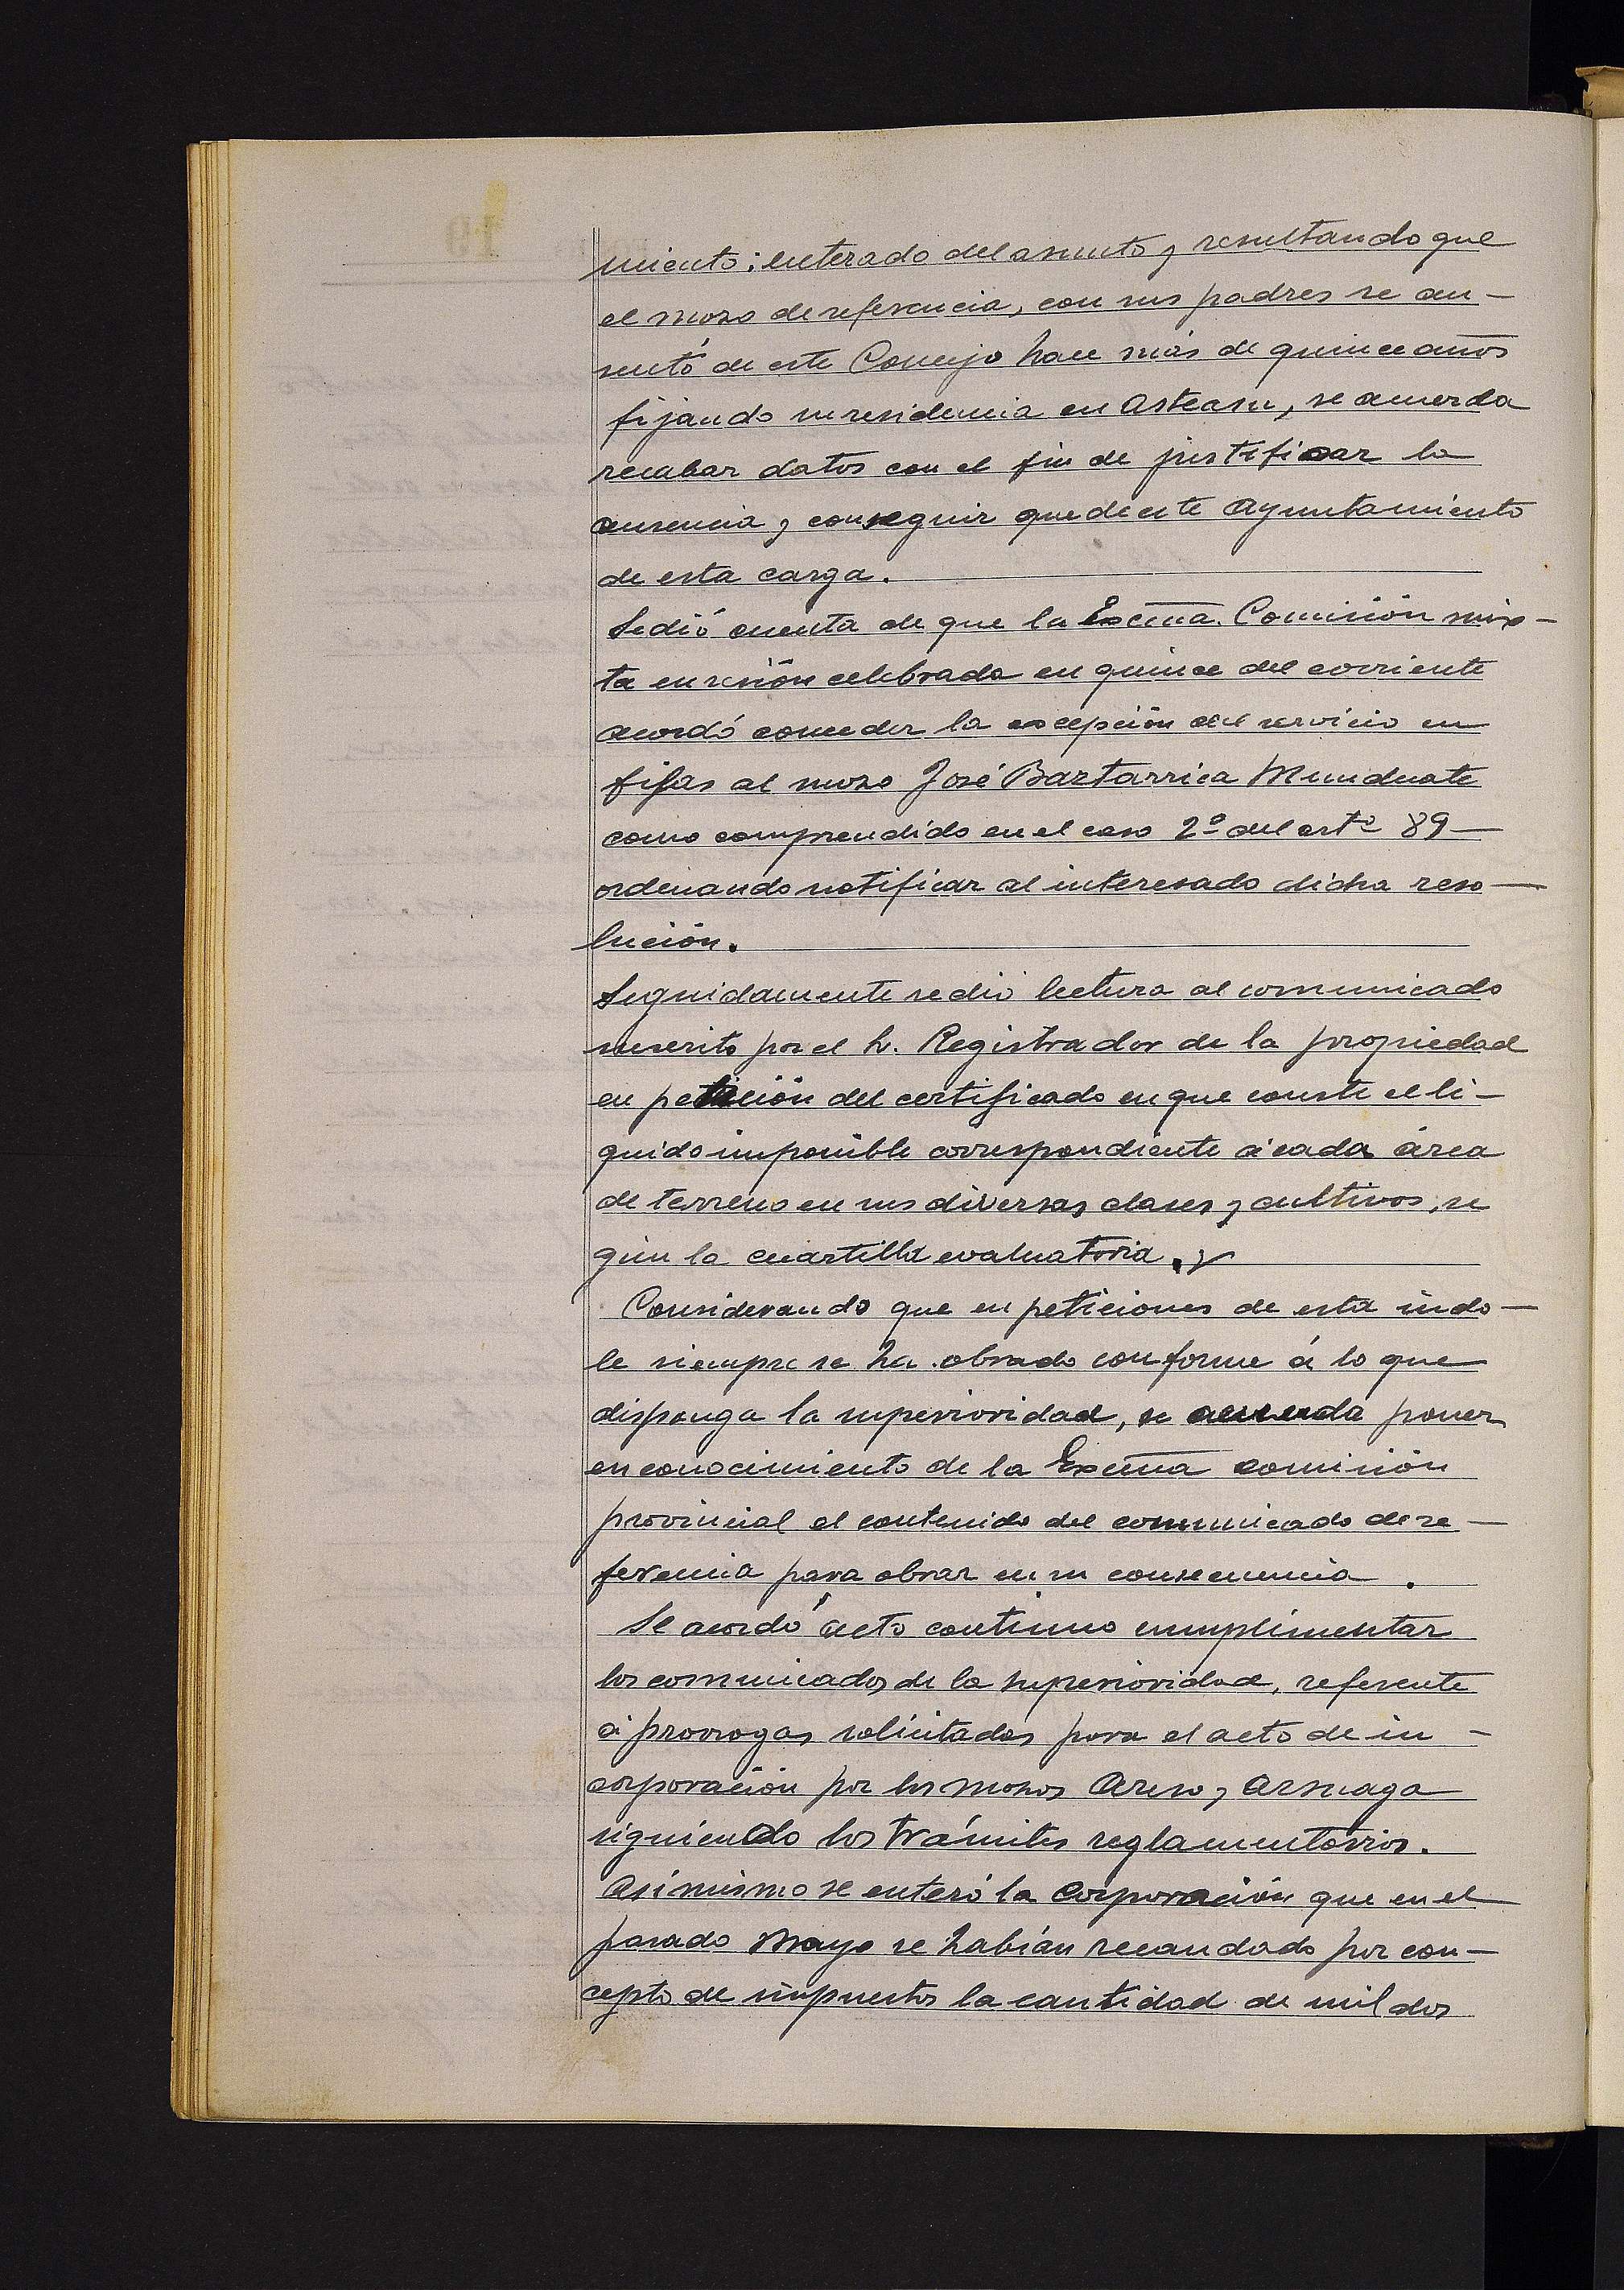 miento: enterado del asunto y resultando que
el mozo de referencia, con sus padres se au-
sentó de este Concejo hace más de quince años
fijando su residencia en Asteasu, se acuerda
recabar datos con el fin de justificar la
ausencia y conseguir quede este Ayuntamiento
de esta carga.
Se dió cuenta de que la Excma. Comisión mix-
ta en sesión celebrada en quince del corriente
acordó conceder la excepción del servicio en
filas al mozo José Baztarrica Munduate
como comprendido en el caso 2º del artº 89
ordenando notificar al interesado dicha reso-
lución.
Seguidamente se dió lectura al comunicado
suscrito por el Sr. Registrador de la propiedad
en petición del certificado en que conste el lí-
quido imponible correspondiente á cada área
de terreno en sus diversas clases y cultivos, se
gún la cuartilla evaluatoria. y
Considerando que en peticiones de esta índo-
le siempre se ha obrado conforme á lo que
disponga la superioridad, se acuerda poner
en conocimiento de la Excma comisión
provincial el contenido del comunicado de re-
ferencia para obrar en su consecuencia.
Se acordó acto continuo cumplimentar
los comunicados de la superioridad, referente
á prorrogas solicitadas para el acto de in-
corporación por los mozos Areso y Arsuaga
siguiendo los trámites reglamentarios.
Asímismo se enteró la Corporación que en el
pasado Mayo se habían recaudado por con-
cepto de impuestos la cantidad de mil dos